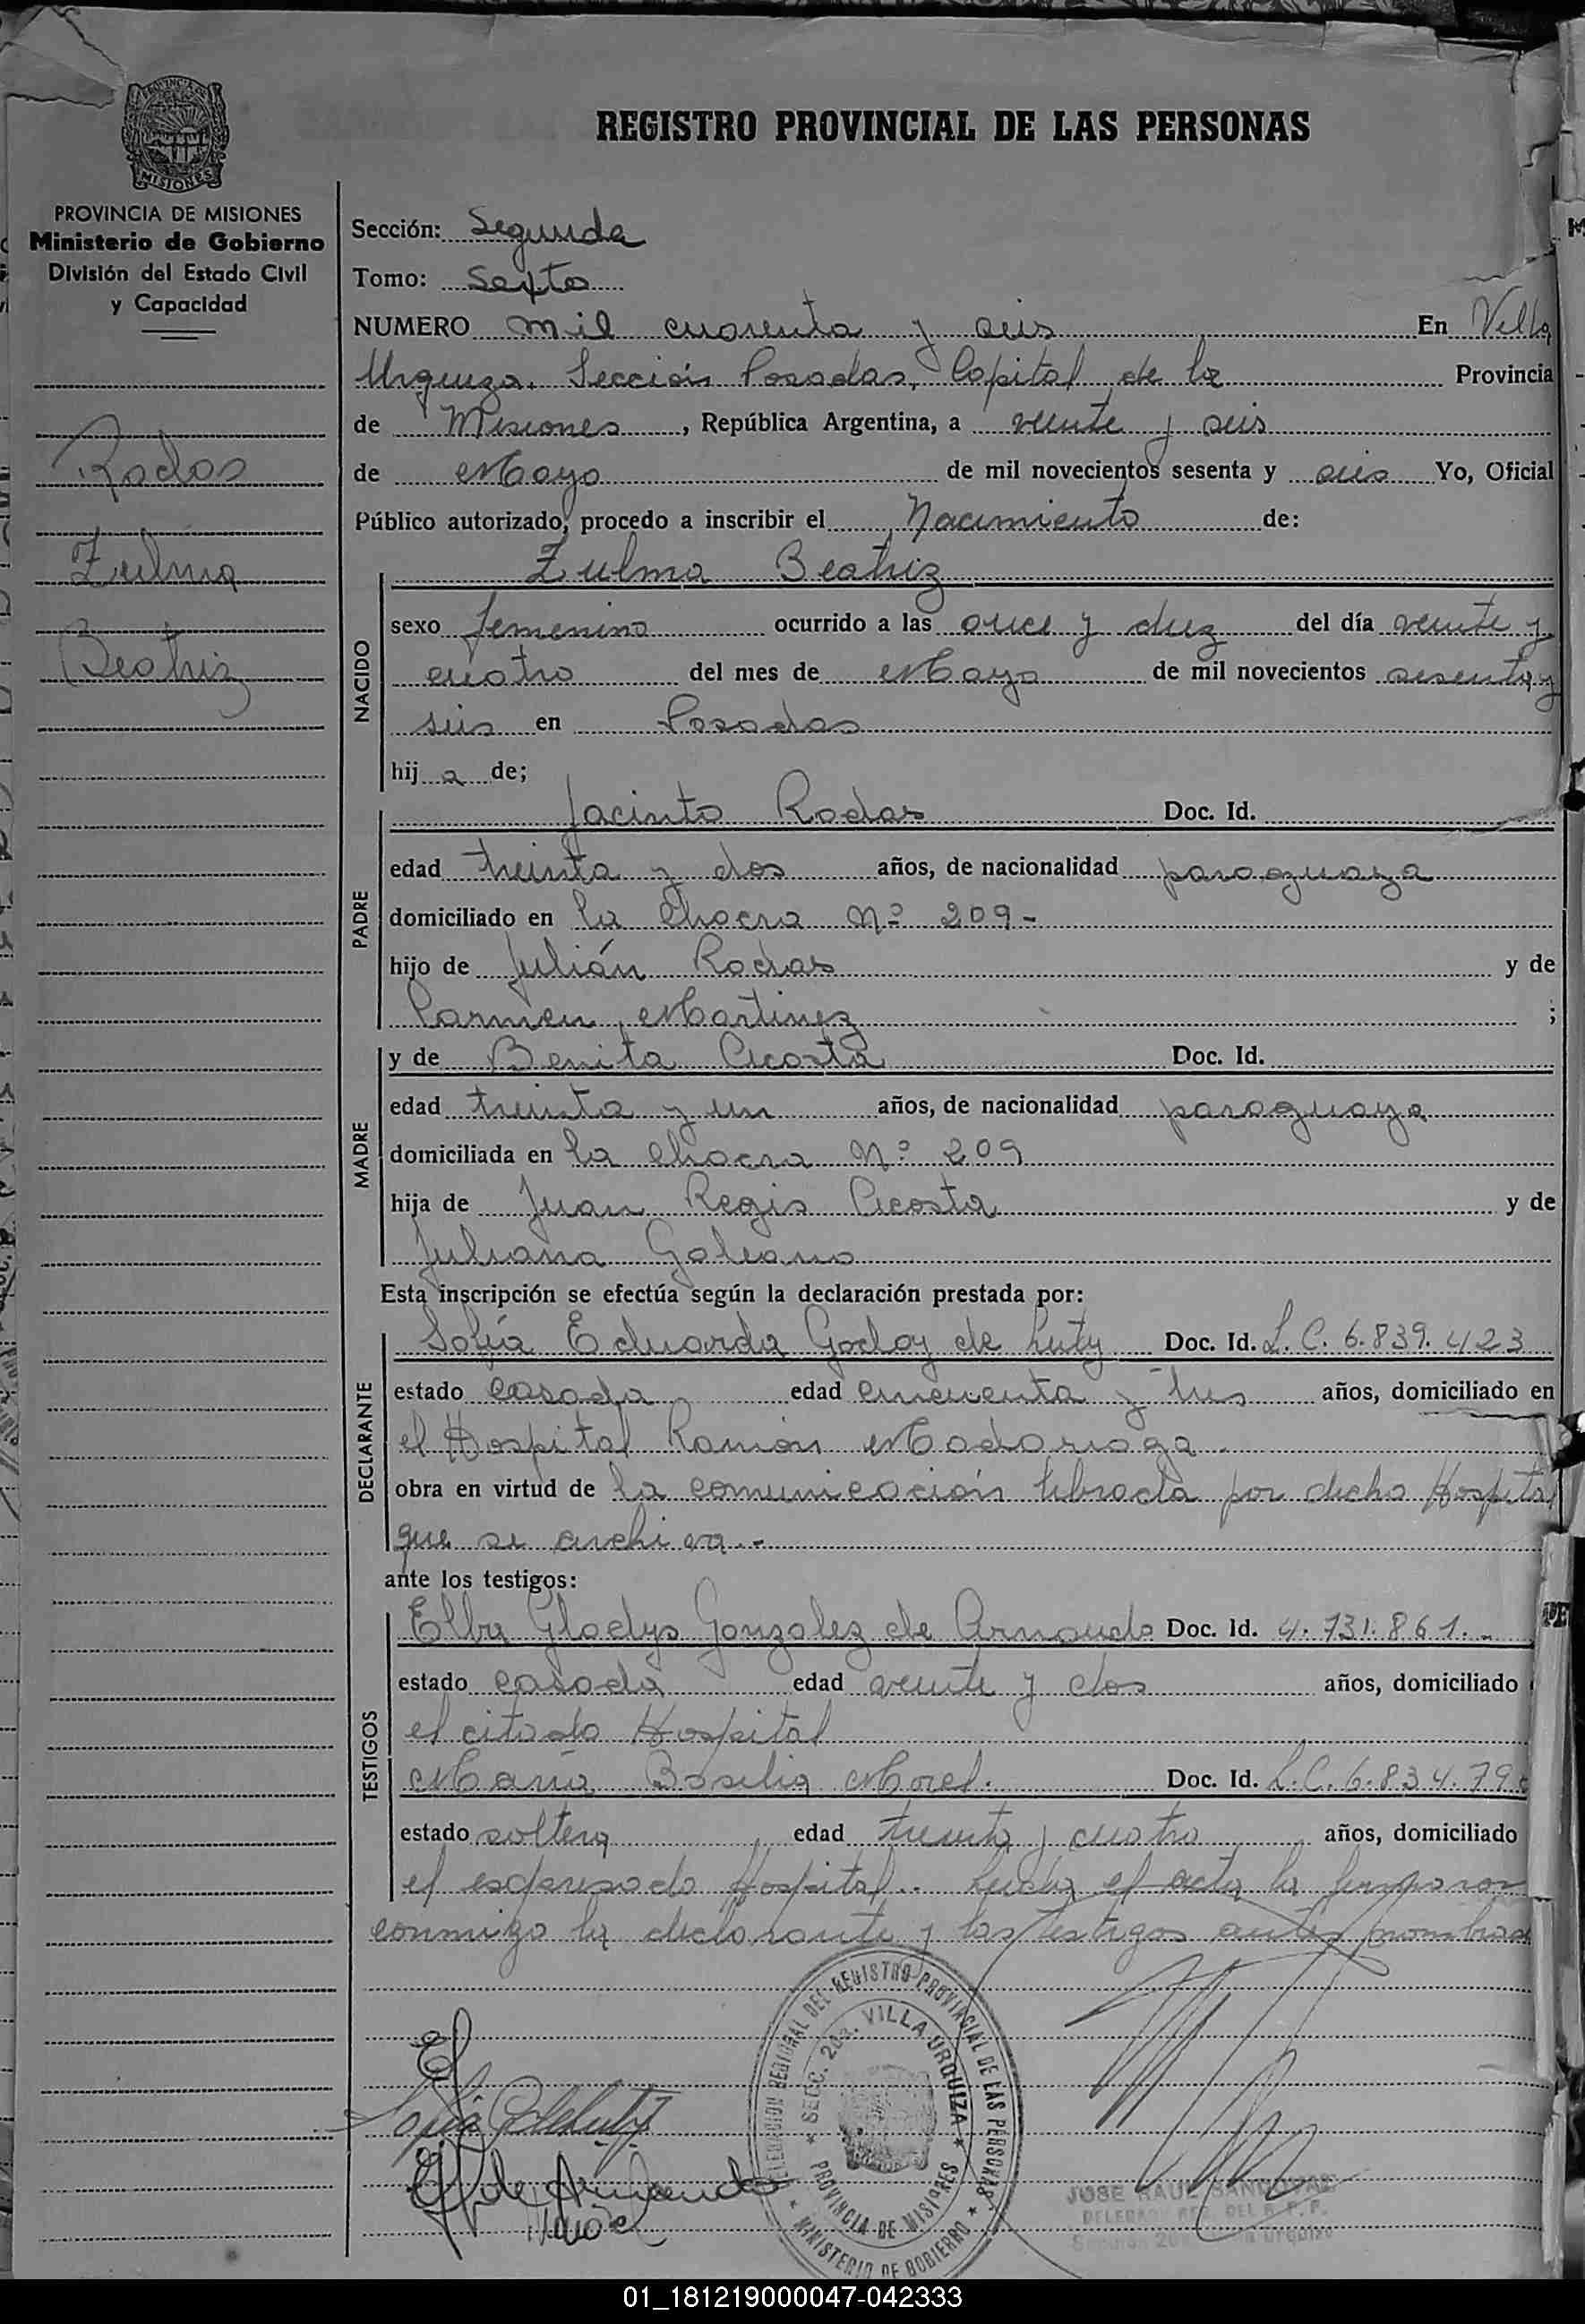 PROVINCIA DE MISIONES
Ministerio de Gobierno
División del Estado Civil
y Capacidad
Rodas
Zulma
Beatriz
REGISTRO PROVINCIAL DE LAS PERSONAS
Sección: Segunda
Tomo: Sexto
NUMERO mil cuarenta y seis En Villa
Urquiza. Sección Posadas, Capital de la Provincia
de Misiones, República Argentina, a veinte y seis
de Mayo de mil novecientos sesenta y seis Yo, Oficial
Público autorizado, procedo a inscribir el Nacimiento de:
NACIDO
Zulma Beatriz
sexo femenino ocurrido a las once y diez del día veinte y
cuatro del mes de Mayo de mil novecientos sesenta y
seis en Posadas
hij a de;
PADRE
Jacinto Rodas Doc. Id.
edad treinta y dos años, de nacionalidad paraguaya
domiciliado en la Chacra Nº 209-
hijo de Julián Rodas y de
Carmen Martinez ;
MADRE
y de Benita Acosta Doc. Id.
edad treinta y un años, de nacionalidad paraguaya
domiciliada en la Chacra Nº 209
hija de Juan Regis Acosta y de
Juliana Galeano
Esta inscripción se efectúa según la declaración prestada por:
DECLARANTE
Sofía Eduarda Godoy de Luty Doc. Id. L.C. 6.839.423
estado casada edad cincuenta y tres años, domiciliado en
el Hospital Ramón Madariaga.
obra en virtud de la comunicación librada por dicho Hospital
que se archiva.-
ante los testigos:
TESTIGOS
Elba Gladys Gonzalez de Armando Doc. Id. 4.731.861.-
estado casada edad veinte y dos años, domiciliado
el citado Hospital
María Basilia Morel. Doc. Id. L.C. 6.834.79
estado soltera edad treinta y cuatro años, domiciliado
el expresado Hospital.. Leída el acta la firmaron
conmigo la declarante y las testigos antes nombrad
Sofía G de Luty
E G de Armando
DELEGACION REGIONAL DEL REGISTRO PROVINCIAL DE LAS PERSONAS
SECC. 2da. VILLA URQUIZA
PROVINCIA DE MISIONES
MINISTERIO DE GOBIERNO
JOSE RAUL SANDOVAL
01_181219000047-042333